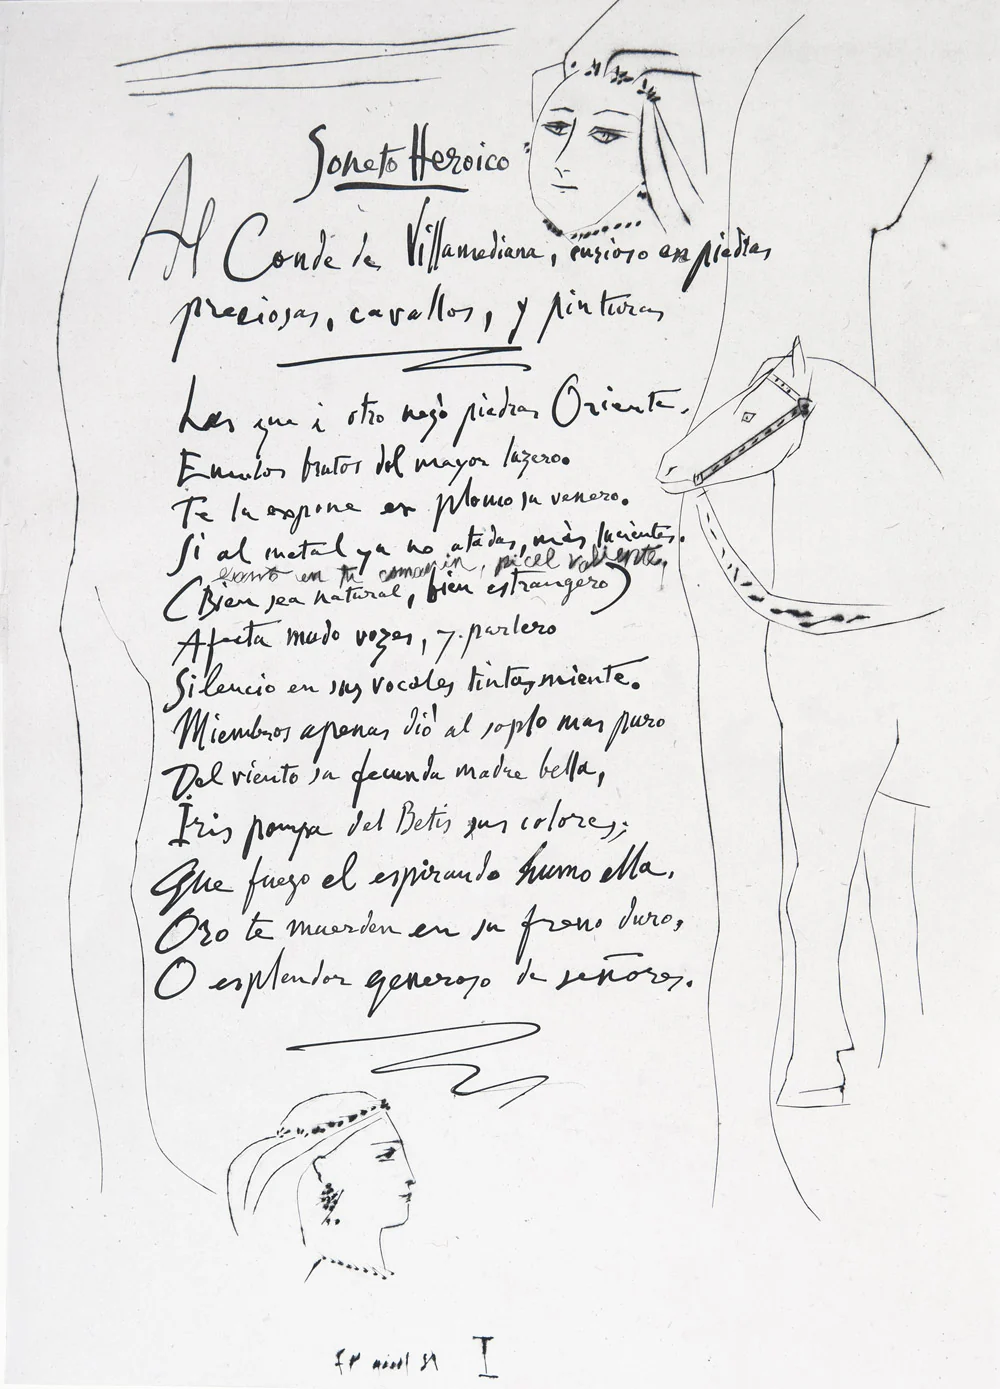 Soneto Heroico
Al Conde de Villamediana, curioso en piedras
preciosas, cavallos, y pinturas
Las que a otro negò piedras Oriente.
Emulos brutos del mayor luzero.
Te la expone en plomo su venero.
Si al metal ya no atadas, mas lucientes.
en tu camarin, pincel valiente,
(Bien sea natural, bien estrangero)
Afecta mudo vozes, y parlero
Silencio en sus vocales tintas miente.
Miembros apenas diò al soplo mas puro
Del viento su fecunda madre bella,
Iris pompa del Betis sus colores;
Que fuego el espirando humo ella.
Oro te muerden en su freno duro,
O esplendor generoso de señores.
I